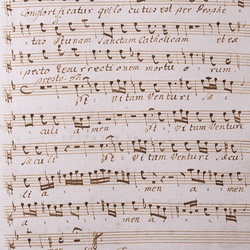 conglorificatur qui locutus est per Prophe
tas Et unam Sanctam Catholicam et ex
pecto resurrectionem mortuorum,
presto
Et Vitam Venturi Sæ
culi amen Et Vitam Venturi
Sæculi Et Vitam Venturi Sæcu
li a men a men
a men a men,